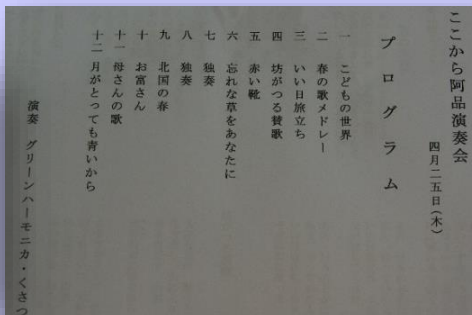 ここから阿品演奏会
四月二五日(木)
プログラム
一 こどもの世界
二 春の歌メドレー
三 いい日旅立ち
四 坊がつる賛歌
五 赤い靴
六 忘れな草をあなたに
七 独奏
八 独奏
九 北国の春
十 お富さん
十一 母さんの歌
十二 月がとっても青いから
演奏 グリーンハーモニカ・くさつ